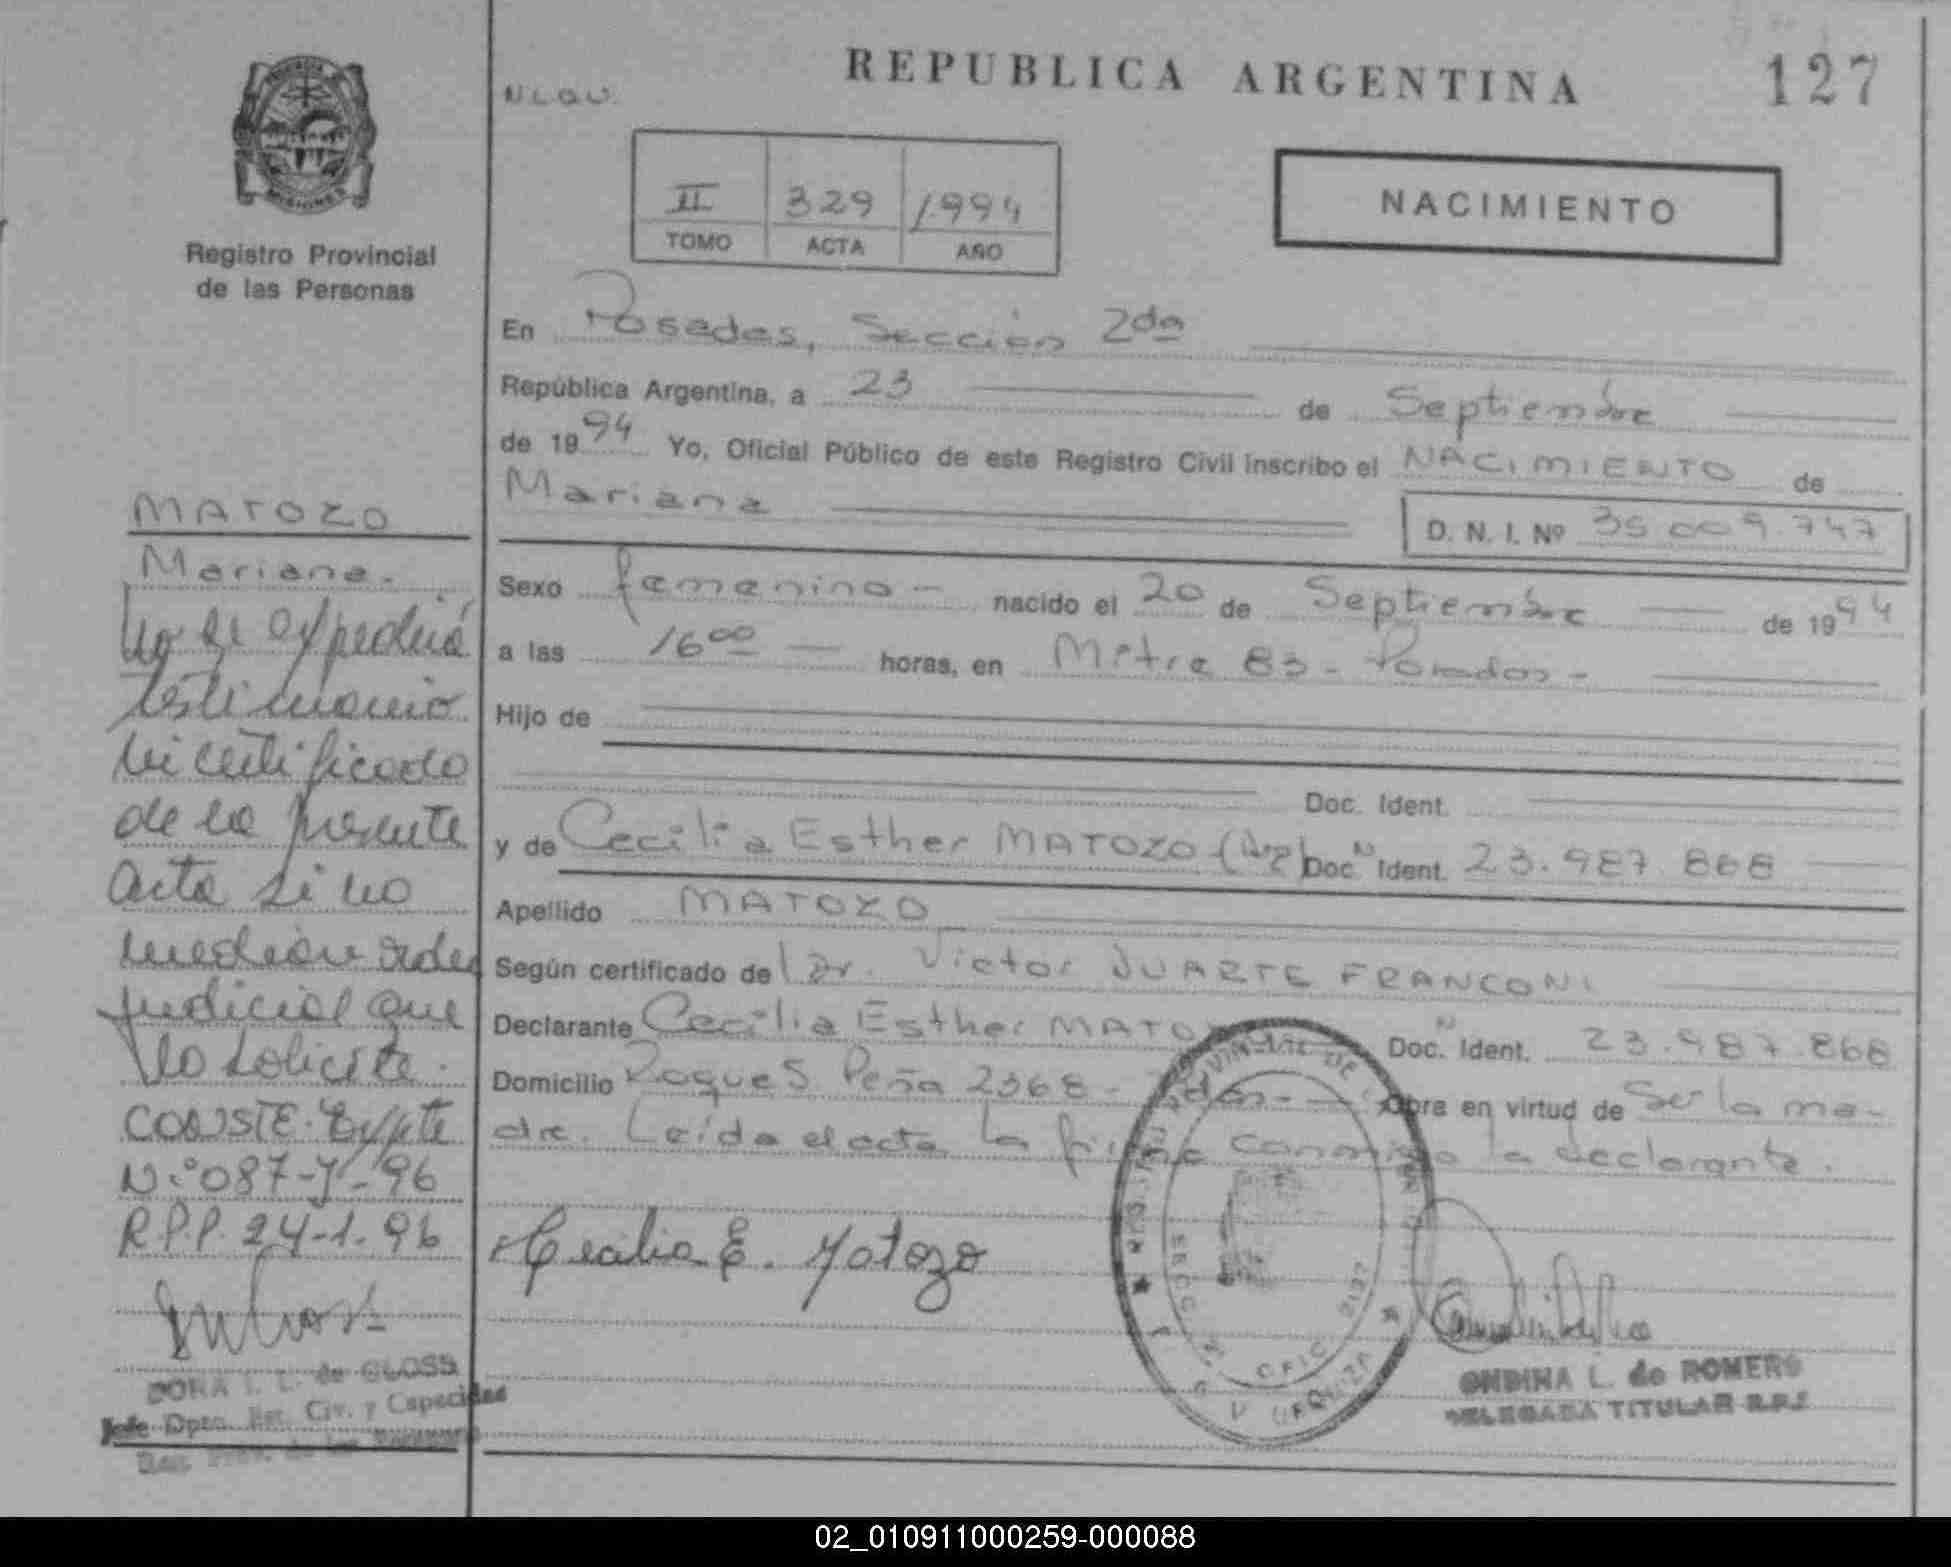 REPUBLICA ARGENTINA
127
Registro Provincial
de las Personas
II 329 1994
TOMO ACTA AÑO
NACIMIENTO
En Posadas, Sección 2da
República Argentina, a 23 de Septiembre
de 1994 Yo, Oficial Público de este Registro Civil inscribo el NACIMIENTO de
Mariana D. N. I. Nº 35.009.747
Sexo femenino - nacido el 20 de Septiembre de 1994
a las 16 00 - horas, en Mitre 83 - Posadas -
Hijo de
Doc. Ident.
y de Cecilia Esther MATOZO (Arg) Doc. Ident. 23.987.868
Apellido MATOZO
Según certificado de Dr. Victor DUARTE FRANCONI
Declarante Cecilia Esther MATOZO Doc. Ident. 23.987.868
Domicilio Roque S. Peña 2368 - Obra en virtud de Ser la ma-
dre. Leída el acta la firma conmigo la declarante.
Cecilia E. Matozo
ONDINA L. de ROMERO
DELEGADA TITULAR R.P.P.
MATOZO
Mariana.-
No se expedirá
testimonio
ni certificado
de la presente
acta si no
media orden
judicial que
lo solicite.
CONSTE. Expte
N:º 087-J-96
R.P.P. 24-1-96
DORA de GLOSS
Jefe Dpto. Est. Civ. y Capacidad
02_010911000259-000088